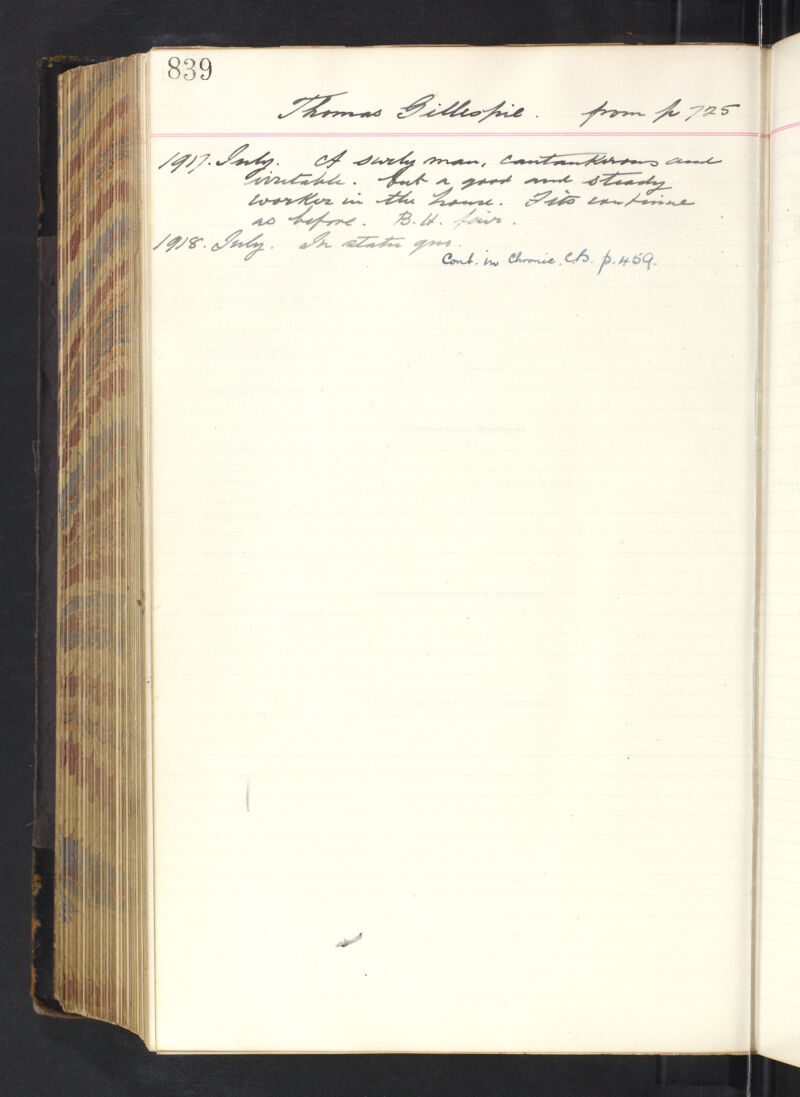 839
Thomas Gillespie. from p 725
1917. July. A surly man, cantankerous and
irritable. but a good and steady
worker in the house. Fits continue
as before. B.H. fair.
1918. July. In statu quo.
Cont. in Chronic. C.B. p. 459.